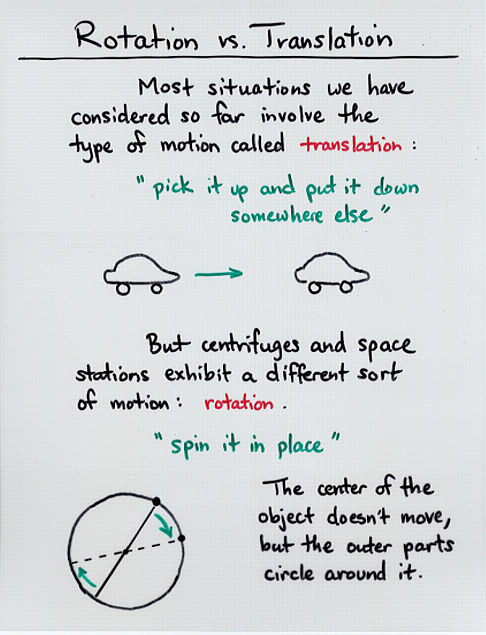 Rotation vs. Translation
Most situations we have
considered so far involve the
type of motion called translation :
"pick it up and put it down
somewhere else"
But centrifuges and space
stations exhibit a different sort
of motion : rotation .
"spin it in place"
The center of the
object doesn't move,
but the outer parts
circle around it.